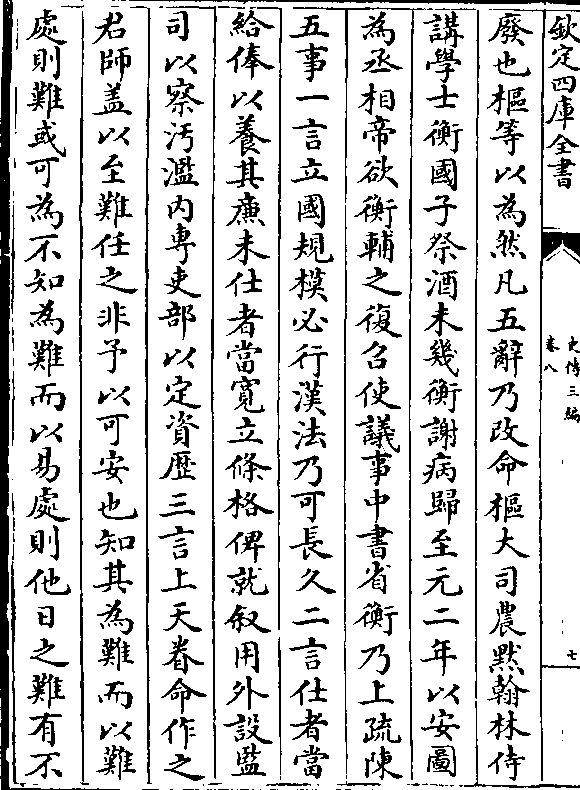 欽定四庫全書
史傳三編
卷八
七
廢也樞等以為然凡五辭乃改命樞大司農黙翰林侍
講學士衡國子祭酒未幾衡謝病歸至元二年以安圖
為丞相帝欲衡輔之復召使議事中書省衡乃上疏陳
五事一言立國規模必行漢法乃可長久二言仕者當
給俸以養其廉未仕者當寛立條格俾就叙用外設監
司以察汚濫内専吏部以定資歴三言上天眷命作之
君師盖以至難任之非予以可安也知其為難而以難
處則難或可為不知為難而以易處則他日之難有不